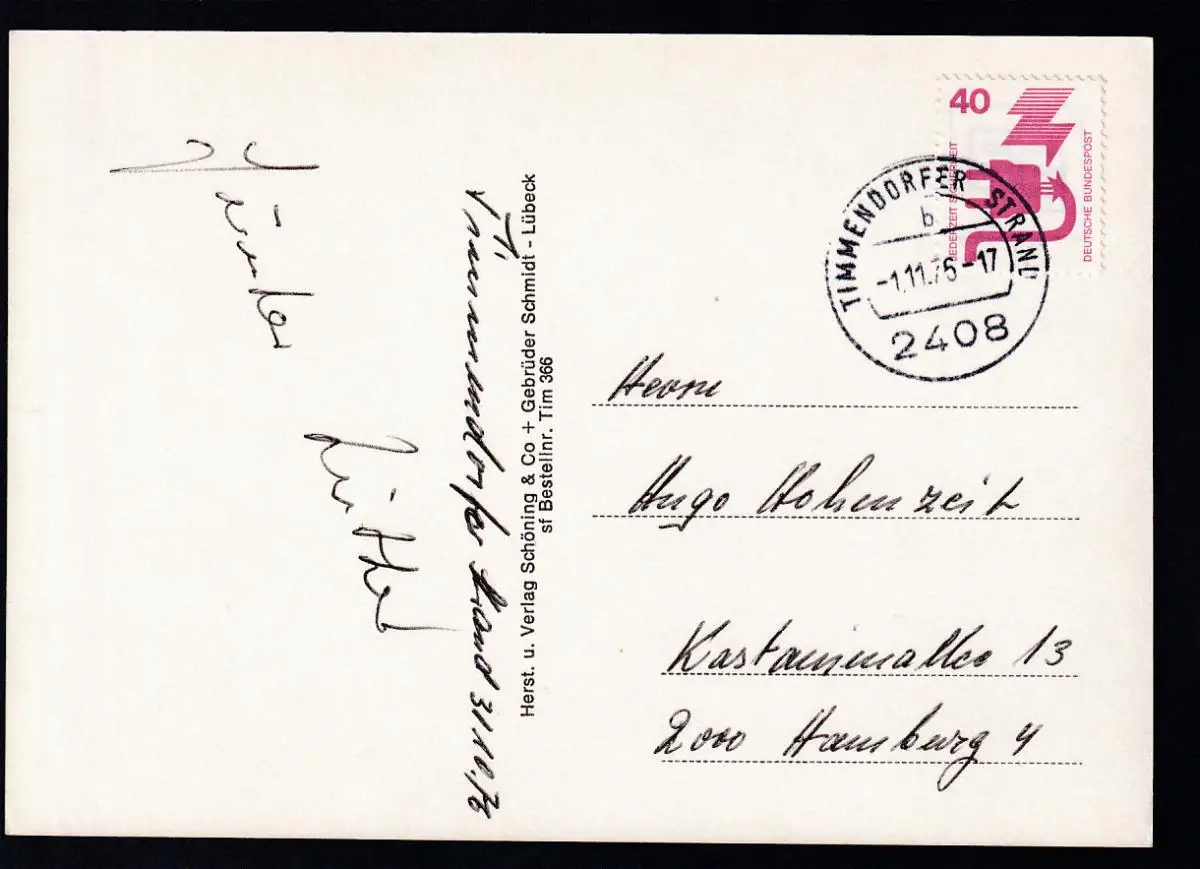 40
JEDERZEIT SICHERHEIT
DEUTSCHE BUNDESPOST
TIMMENDORFER STRAND
b
-1.11.76-17
2408
Herrn
Hugo Hohenzeit
Kastanienallee 13
2000 Hamburg 4
Herst. u. Verlag Schöning & Co + Gebrüder Schmidt - Lübeck
sf Bestellnr. Tim 366
Timmendorfer Strand 31.10.76